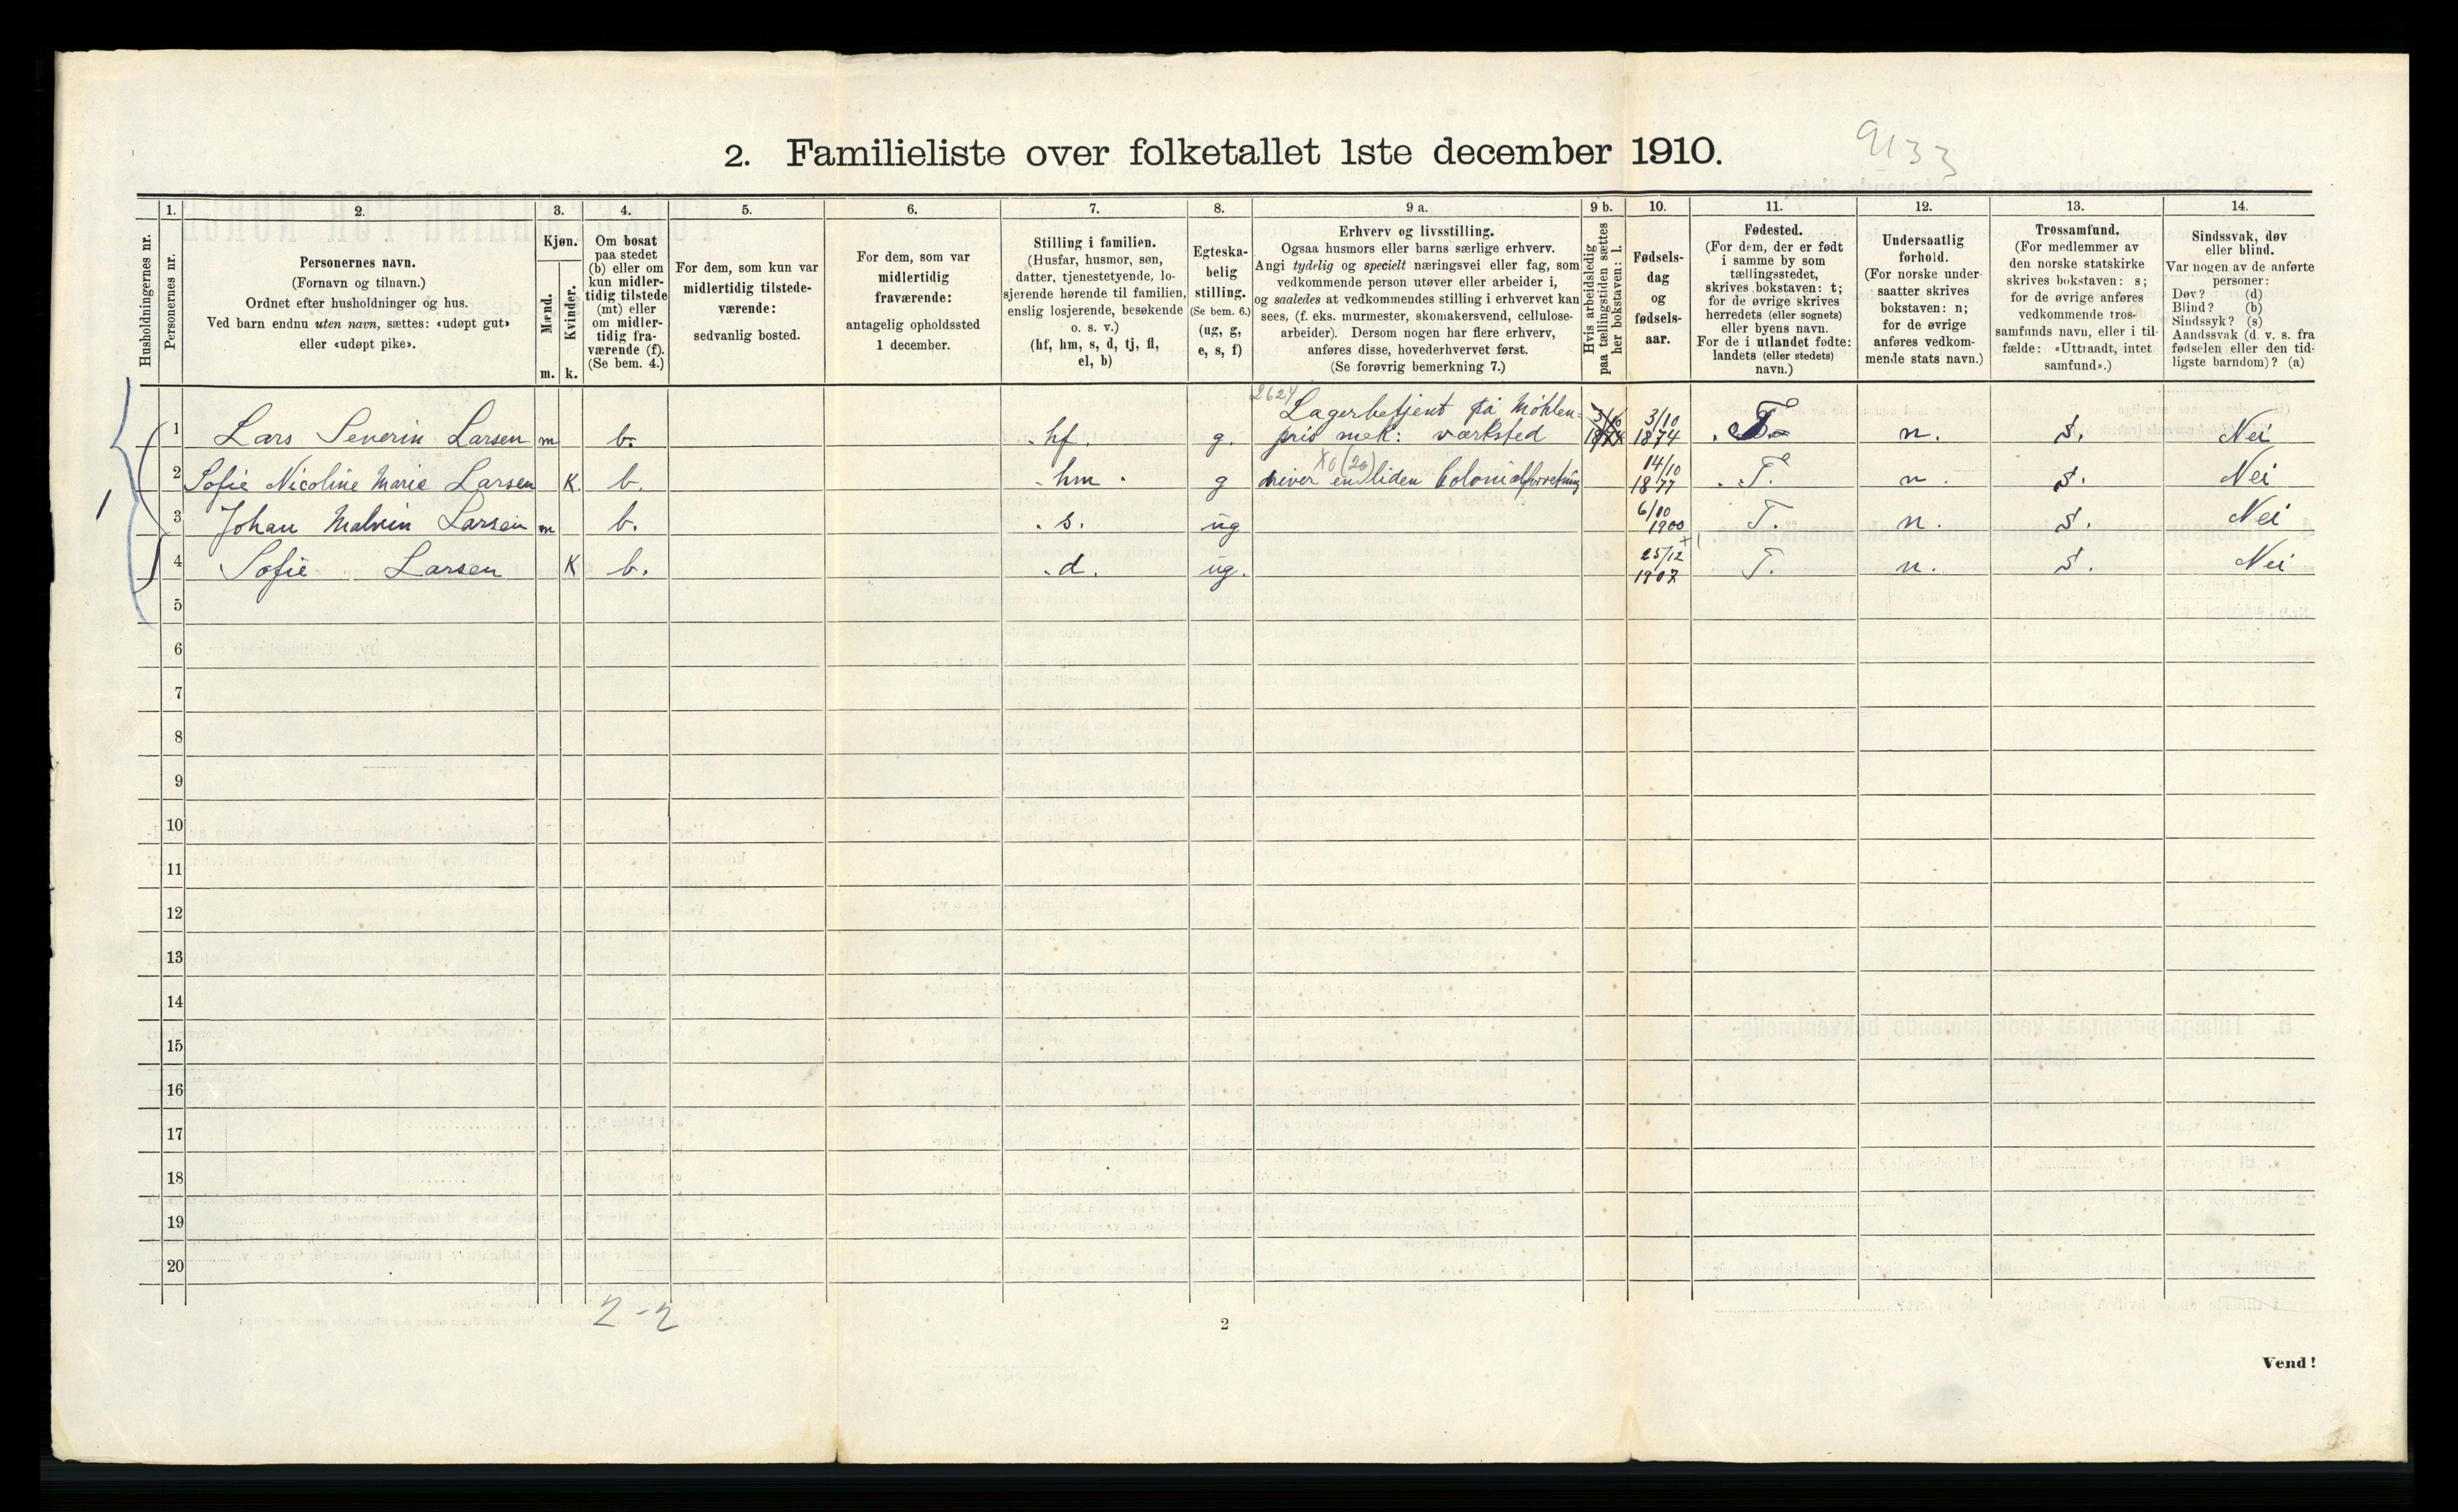 9133
2. Familieliste over folketallet 1ste december 1910.
Husholdningernes nr.
1.
Personernes nr.
2.
Personernes navn.
(Fornavn og tilnavn.)
Ordnet efter husholdninger og hus.
Ved barn endnu uten navn, sættes: «udøpt gut»
eller «udøpt pike».
3.
Kjøn.
Mænd.
Kvinder.
m. k.
4.
Om bosat
paa stedet
(b) eller om
kun midler-
tidig tilstede
(mt) eller
om midler-
tidig fra-
værende (f).
(Se bem. 4.)
5.
For dem, som kun var
midlertidig tilstede-
værende:
sedvanlig bosted.
6.
For dem, som var
midlertidig
fraværende:
antagelig opholdssted
1 december.
7.
Stilling i familien.
(Husfar, husmor, søn,
datter, tjenestetyende, lo-
sjerende hørende til familien,
enslig losjerende, besøkende
o. s. v.)
(hf, hm, s, d, tj, fl,
el, b)
8.
Egteska-
belig
stilling.
(Se bem. 6.)
(ug, g,
e, s, f)
9 a.
Erhverv og livsstilling.
Ogsaa husmors eller barns særlige erhverv.
Angi tydelig og specielt næringsvei eller fag, som
vedkommende person utøver eller arbeider i,
og saaledes at vedkommendes stilling i erhvervet kan
sees, (f. eks. murmester, skomakersvend, cellulose-
arbeider). Dersom nogen har flere erhverv,
anføres disse, hovederhvervet først.
(Se forøvrig bemerkning 7.)
9 b.
Hvis arbeidsledig
paa tællingstiden sættes
her bokstaven: l.
10.
Fødsels-
dag
og
fødsels-
aar.
11.
Fødested.
(For dem, der er født
i samme by som
tællingsstedet,
skrives bokstaven: t;
for de øvrige skrives
herredets (eller sognets)
eller byens navn.
For de i utlandet fødte:
landets (eller stedets)
navn.)
12.
Undersaatlig
forhold.
(For norske under-
saatter skrives
bokstaven: n;
for de øvrige
anføres vedkom-
mende stats navn.)
13.
Trossamfund.
(For medlemmer av
den norske statskirke
skrives bokstaven: s;
for de øvrige anføres
vedkommende tros-
samfunds navn, eller i til-
fælde: «Uttraadt, intet
samfund».)
14.
Sindssvak, døv
eller blind.
Var nogen av de anførte
personer:
Døv? (d)
Blind? (b)
Sindssyk? (s)
Aandssvak (d. v. s. fra
fødselen eller den tid-
ligste barndom)? (a)
2624
1 Lars Severin Larsen m b. hf. g. Lagerbetjent på Möhlen-
pris mek: værksted 3/10 1874 3/10 1874 T. n. s. Nei
X0 (20)
2 Sofie Nicoline Marie Larsen K b. hm. g driver en liden Colonialforretning 14/10 1877 T. n. s. Nei
1
3 Johan Malvin Larsen m b. s. ug 6/10 1900 T. n. s. Nei
4 Sofie Larsen K b. d. ug. 25/12 1907 T. n. s. Nei
5
6
7
8
9
10
11
12
13
14
15
16
17
18
19
20
2-2
2
Vend!